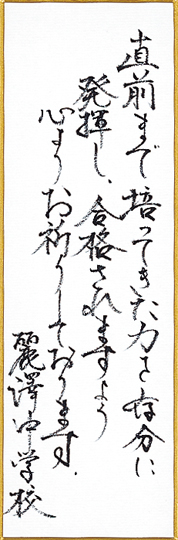 直前まで培ってきた力を存分に
発揮し、合格されますよう
心よりお祈りしております.
麗澤中学校